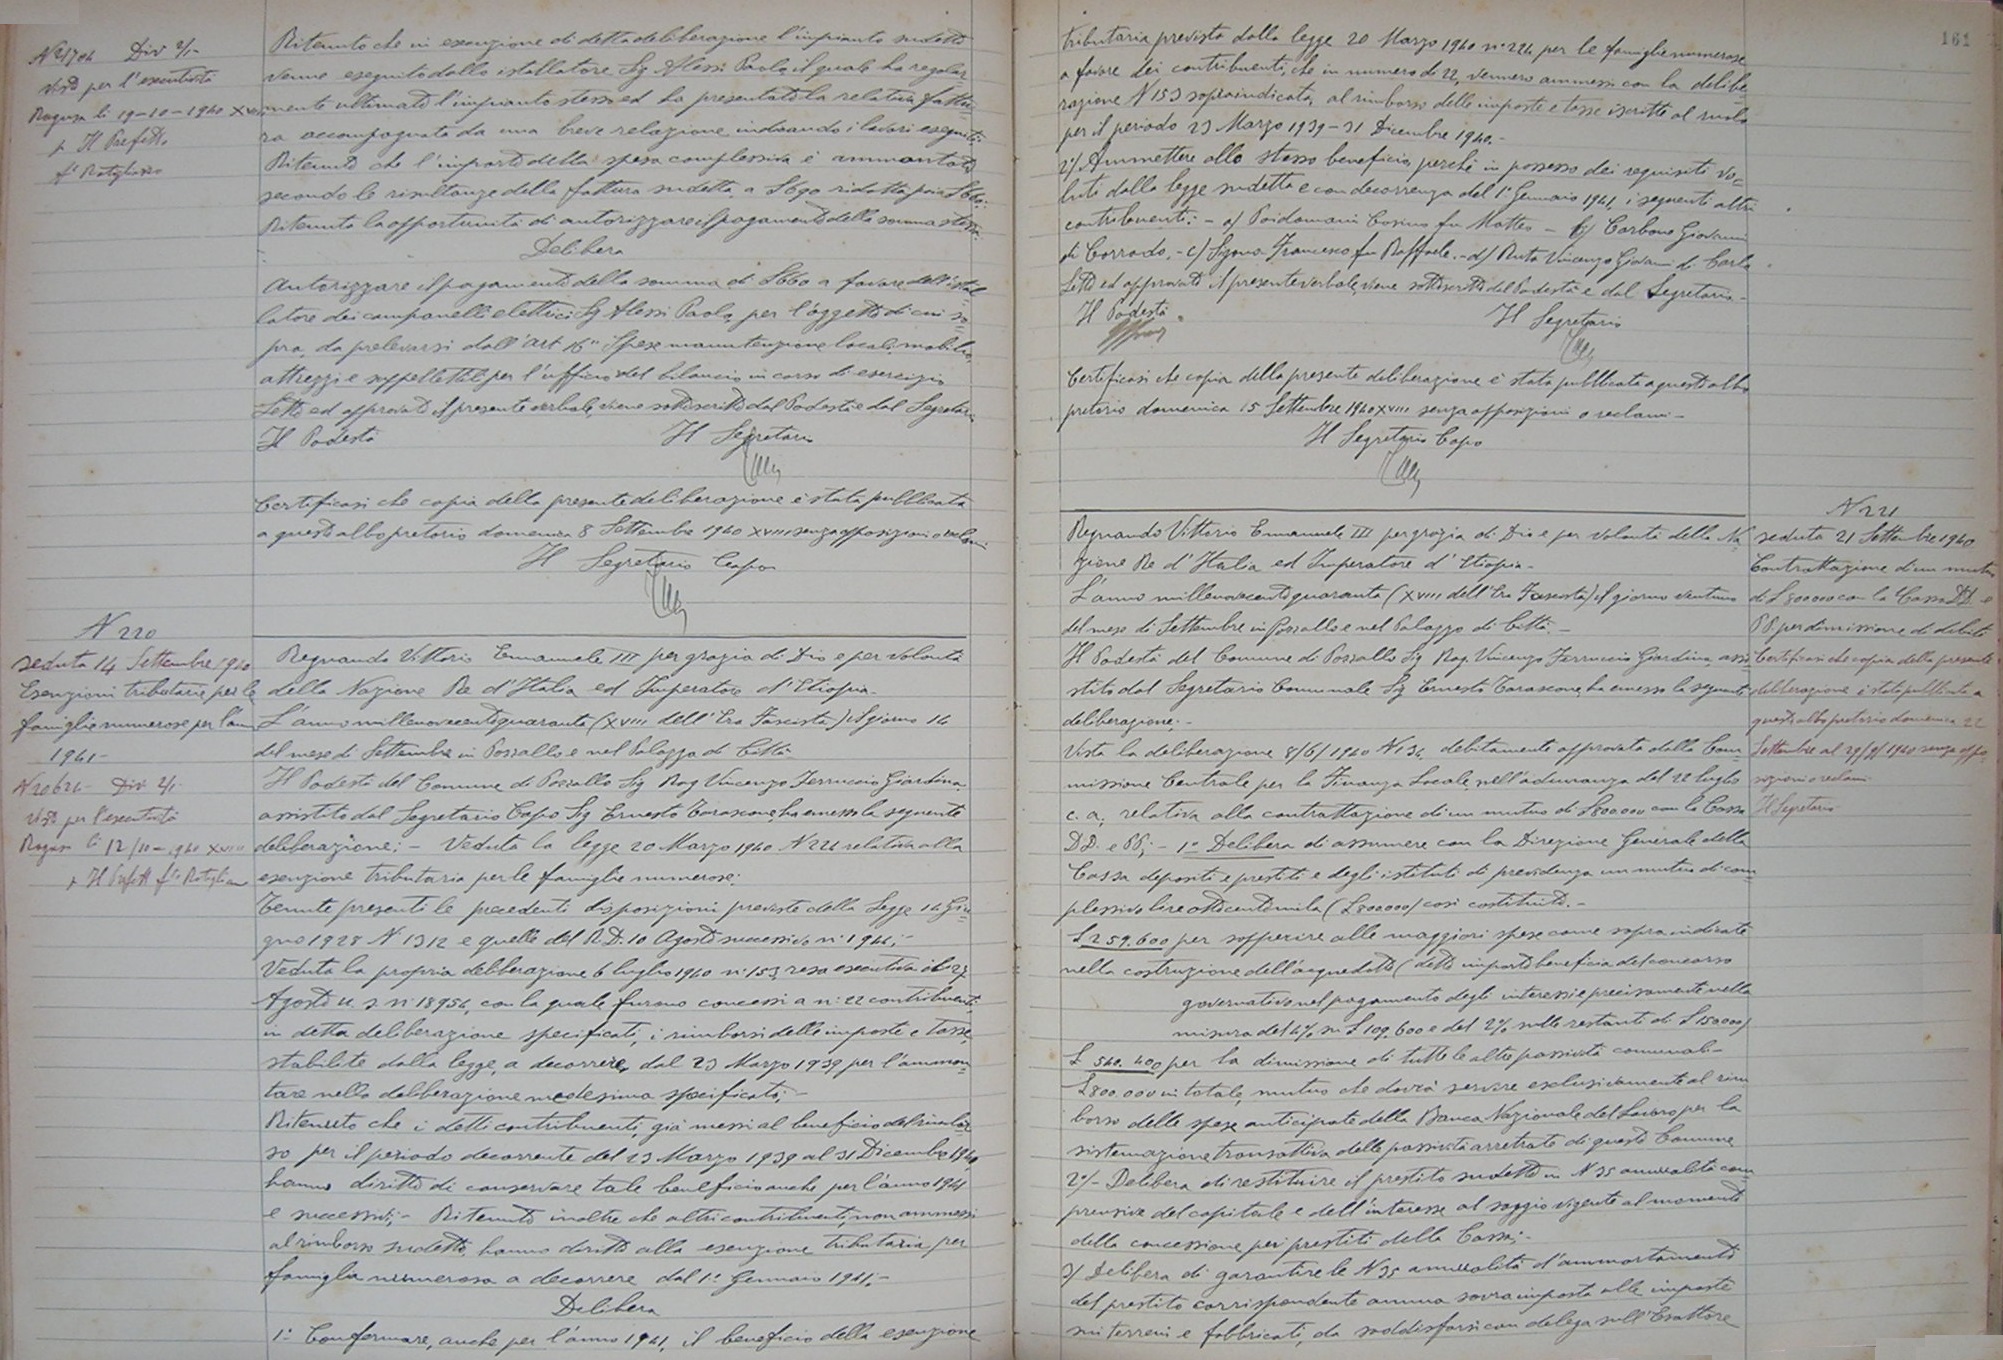 N 21704 Div 2/1-
visto per l'esecutorietà
Ragusa li 19-10-1940 XVIII
p Il Prefetto
Ritenuto che in esecuzione di detta deliberazione l'impianto sudetto
venne eseguito dallo istallatore Sig Alessi Paolo, il quale ha regolar
mente ultimato l'impianto stesso ed ha presentato la relativa fattu=
ra accompagnata da una breve relazione indicando i lavori eseguiti:
Ritenuto che l'importo della spesa complessiva è ammontato
secondo le risultanze della fattura sudetta a £690 ridotta poi a £660:
Ritenuta la opportunità di autorizzare il pagamento della somma stessa:
Delibera
Autorizzare il pagamento della somma di £660 a favore dell'istal
latore dei campanelli elettrici Sig Alessi Paolo, per l'oggetto di cui so=
pra, da prelevarsi dall'art 16" Spese manutenzione locali, mobilio,
attrezzi e suppellettili per l'ufficio del bilancio in corso di esercizio
Letto ed approvato il presente verbale, viene sottoscritto dal Podestà e dal Segretario
Il Podestà Il Segretario
Certificasi che copia della presente deliberazione è stata pubblicata
a questo albo pretorio domenica 8 Settembre 1940 XVIII senza opposizioni o reclami
Il Segretario Capo
N 220
seduta 14 Settembre 1940
Esenzioni tributarie per le
famiglie numerose per l'anno
1941-
N 20624- Div 2/1-
visto per l'esecutorietà
Ragusa li 12/10-1940 XVIII
p Il Prefetto
Regnando Vittorio Emanuele III per grazia di Dio e per volontà
della Nazione Re d'Italia ed Imperatore d'Etiopia-
L'anno millenovecentoquaranta (XVIII dell'Era Fascista) il giorno 14
del mese di Settembre in Pozzallo e nel Palazzo di Città-
Il Podestà del Comune di Pozzallo Sig Rag Vincenzo Ferruccio Giardina
assistito dal Segretario Capo Sig Ernesto Tarascone, ha emesso la seguente
deliberazione:- Veduta la legge 20 Marzo 1940 N 224 relativa alla
esenzione tributaria per le famiglie numerose;
Tenute presenti le precedenti disposizioni previste della Legge 14 Giu
gno 1928 N 1312 e quelle del R.D. 10 Agosto successivo n° 1944;-
Veduta la propria deliberazione 6 luglio 1940 n° 153, resa esecutiva il 23
Agosto u. s. n° 18954, con la quale furono concessi a n° 22 contribuenti,
in detta deliberazione specificati, i rimborsi delle imposte e tasse,
stabilite dalla legge, a decorrere, dal 23 Marzo 1939 per l'ammon=
tare nella deliberazione medesima specificato;-
Ritenuto che i detti contribuenti, già messi al beneficio del rimbor
so per il periodo decorrente del 23 Marzo 1939 al 31 Dicembre 1940
hanno diritto di conservare tale beneficio anche per l'anno 1941
e successivi;- Ritenuto inoltre che altri contribuenti, non ammessi
al rimborso sudetto, hanno diritto alla esenzione tributaria per
famiglia numerosa a decorrere dal 1° Gennaio 1941;-
Delibera
1° Confermare, anche per l'anno 1941, il beneficio della esenzione
161
tributaria prevista dalla legge 20 Marzo 1940 n° 224 per le famiglie numerose
a favore dei contribuenti, che in numero di 22, vennero ammessi con la delibe=
razione N 153 sopraindicata, al rimborso delle imposte e tasse iscritte al ruolo
per il periodo 23 Marzo 1939-31 Dicembre 1940.-
2°/ Ammettere allo stesso beneficio, perchè in possesso dei requisiti vo=
luti dalla legge sudetta e con decorrenza dal 1° Gennaio 1941, i seguenti altri
contribuenti:- a/ Poidomani Cosimo fu Matteo - b/ Carbone Giovanni
di Corrado.- c/ Francesco fu Raffaele.- d/ Ruta Vincenzo Giovanni di Carlo
Letto ed approvato il presente verbale, viene sottoscritto dal Podestà e dal Segretario-
Il Podestà Il Segretario
Certificasi che copia della presente deliberazione è stata pubblicata a questo albo
pretorio domenica 15 Settembre 1940 XVIII senza opposizioni o reclami-
Il Segretario Capo
Regnando Vittorio Emanuele III per grazia di Dio e per volontà della Na
zione Re d'Italia ed Imperatore d'Etiopia-
L'anno millenovecentoquaranta (XVIII dell'Era Fascista) il giorno ventuno
del mese di Settembre in Pozzallo e nel Palazzo di Città.-
Il Podestà del Comune di Pozzallo Sig Rag. Vincenzo Ferruccio Giardina assi
stito dal Segretario Comunale Sig Ernesto Tarascone, ha emesso la seguente
deliberazione:-
Vista la deliberazione 8/6/1940 N 134, debitamente approvata dalla Com=
missione Centrale per la Finanza Locale, nell'adunanza del 22 luglio
c. a; relativa alla contrattazione di un mutuo di £800000 con la Cassa
DD. e PP;- 1° Delibera di assumere con la Direzione Generale della
Cassa depositi e prestiti e degli istituti di previdenza un mutuo di com
plessive lire ottocentomila (£800000) così costituito.-
£259.600 per sopperire alle maggiori spese come sopra indicate
nella costruzione dell'acquedotto (detto importo beneficia del concorso
governativo nel pagamento degli interessi e precisamente nella
misura del 4% su £109.600 e del 2% sulle restanti di £150000)
£ 540.400 per la dimissione di tutte le altre passività comunali-
£800.000 in totale, mutuo che dovrà servire esclusivamente al rim
borso delle spese anticipate della Banca Nazionale del Lavoro per la
sistemazione transattiva delle passività arretrate di questo Comune
2°/- Delibera di restituire il prestito sudetto in N 35 annualità com
prensive del capitale e dell'interesse al saggio vigente al momento
della concessione pei prestiti della Cassa;-
3/ Delibera di garantire le N 35 annualità d'ammortamento
del prestito corrispondente annua sovraimposta alle imposte
sui terreni e fabbricati, da soddisfarsi con delega sull'Esattore
N 221
seduta 21 Settembre 1940
Contrattazione di un mutuo
di £800000 con la Cassa DD e
PP. per dimissione di debiti
Certificasi che copia della presente
deliberazione è stata pubblicata a
questo albo pretorio domenica 22
Settembre al 29/9/1940 senza oppo
sizioni o reclami
Il Segretario